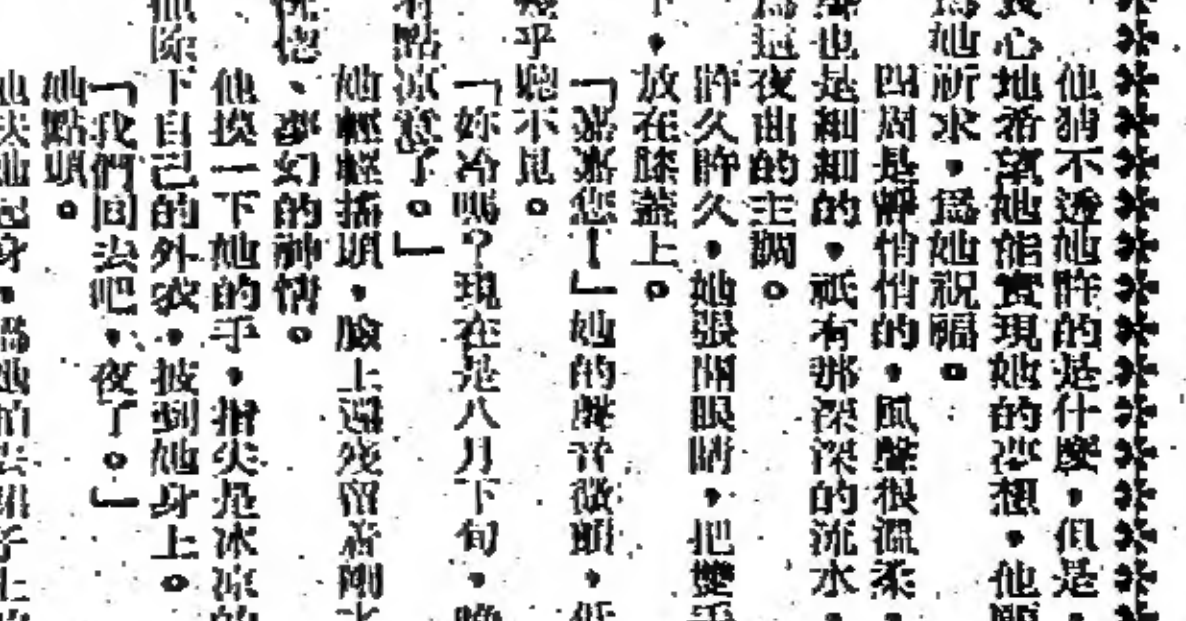 他猜不透她許的是什麼，但是
衷心地希望她能實現她的夢想，他願
為她祈求，爲她祝福。
四周是靜悄悄的，風聲很溫柔，
卻也是細細的，祇有那深深的流水，
為這夜曲的主調。
許久許久，她張開眼睛，把雙手
，放在膝蓋上。
「謝謝您！」她的聲音微顫，低
幾乎聽不見。
「妳冷嗎？現在是八月下旬，晚
有點涼意了。」
她輕輕搖頭，臉上還殘留着剛才
恍惚、夢幻的神情。
他摸一下她的手，指尖是冰涼的
他除下自己的外衣，披到她身上。
「我們回去吧，夜了。」
她點頭。
他扶她起身，替她拍去裙子上的